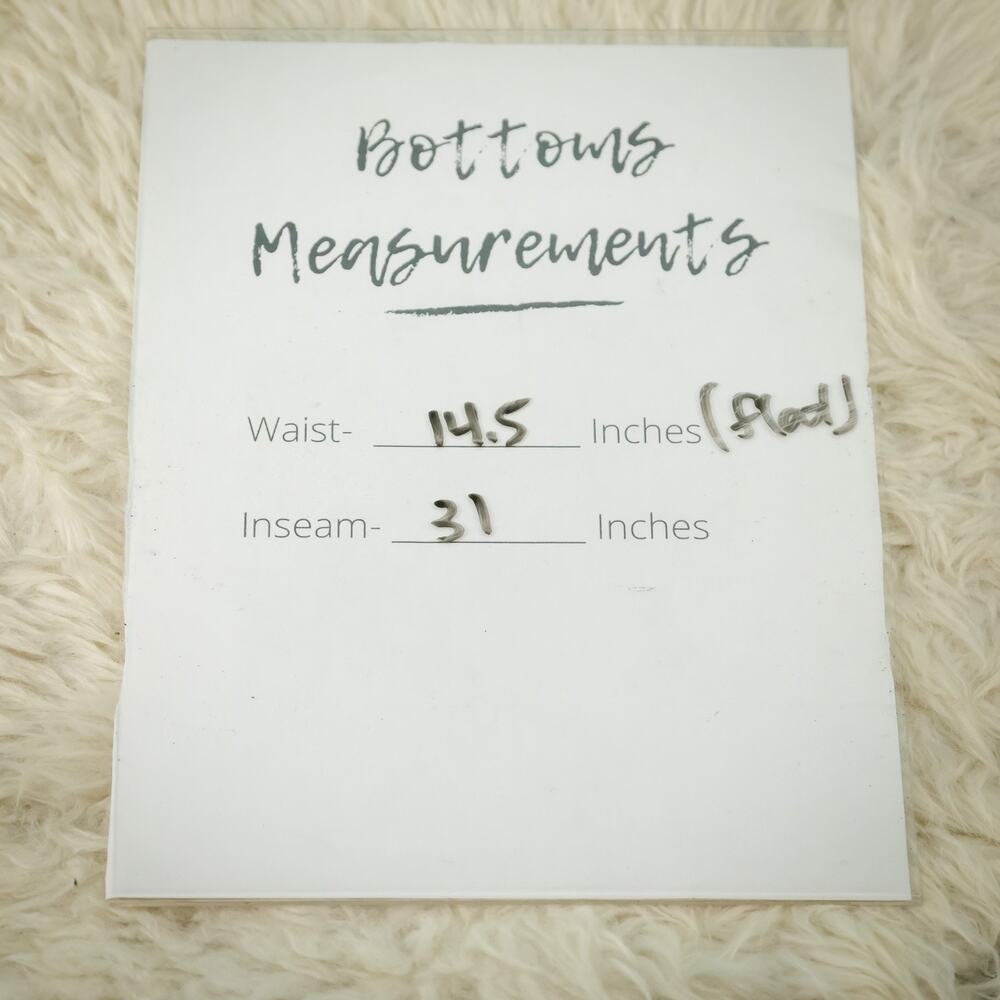 Bottoms
Measurements
Waist- 14.5 Inches (flat)
Inseam- 31 Inches